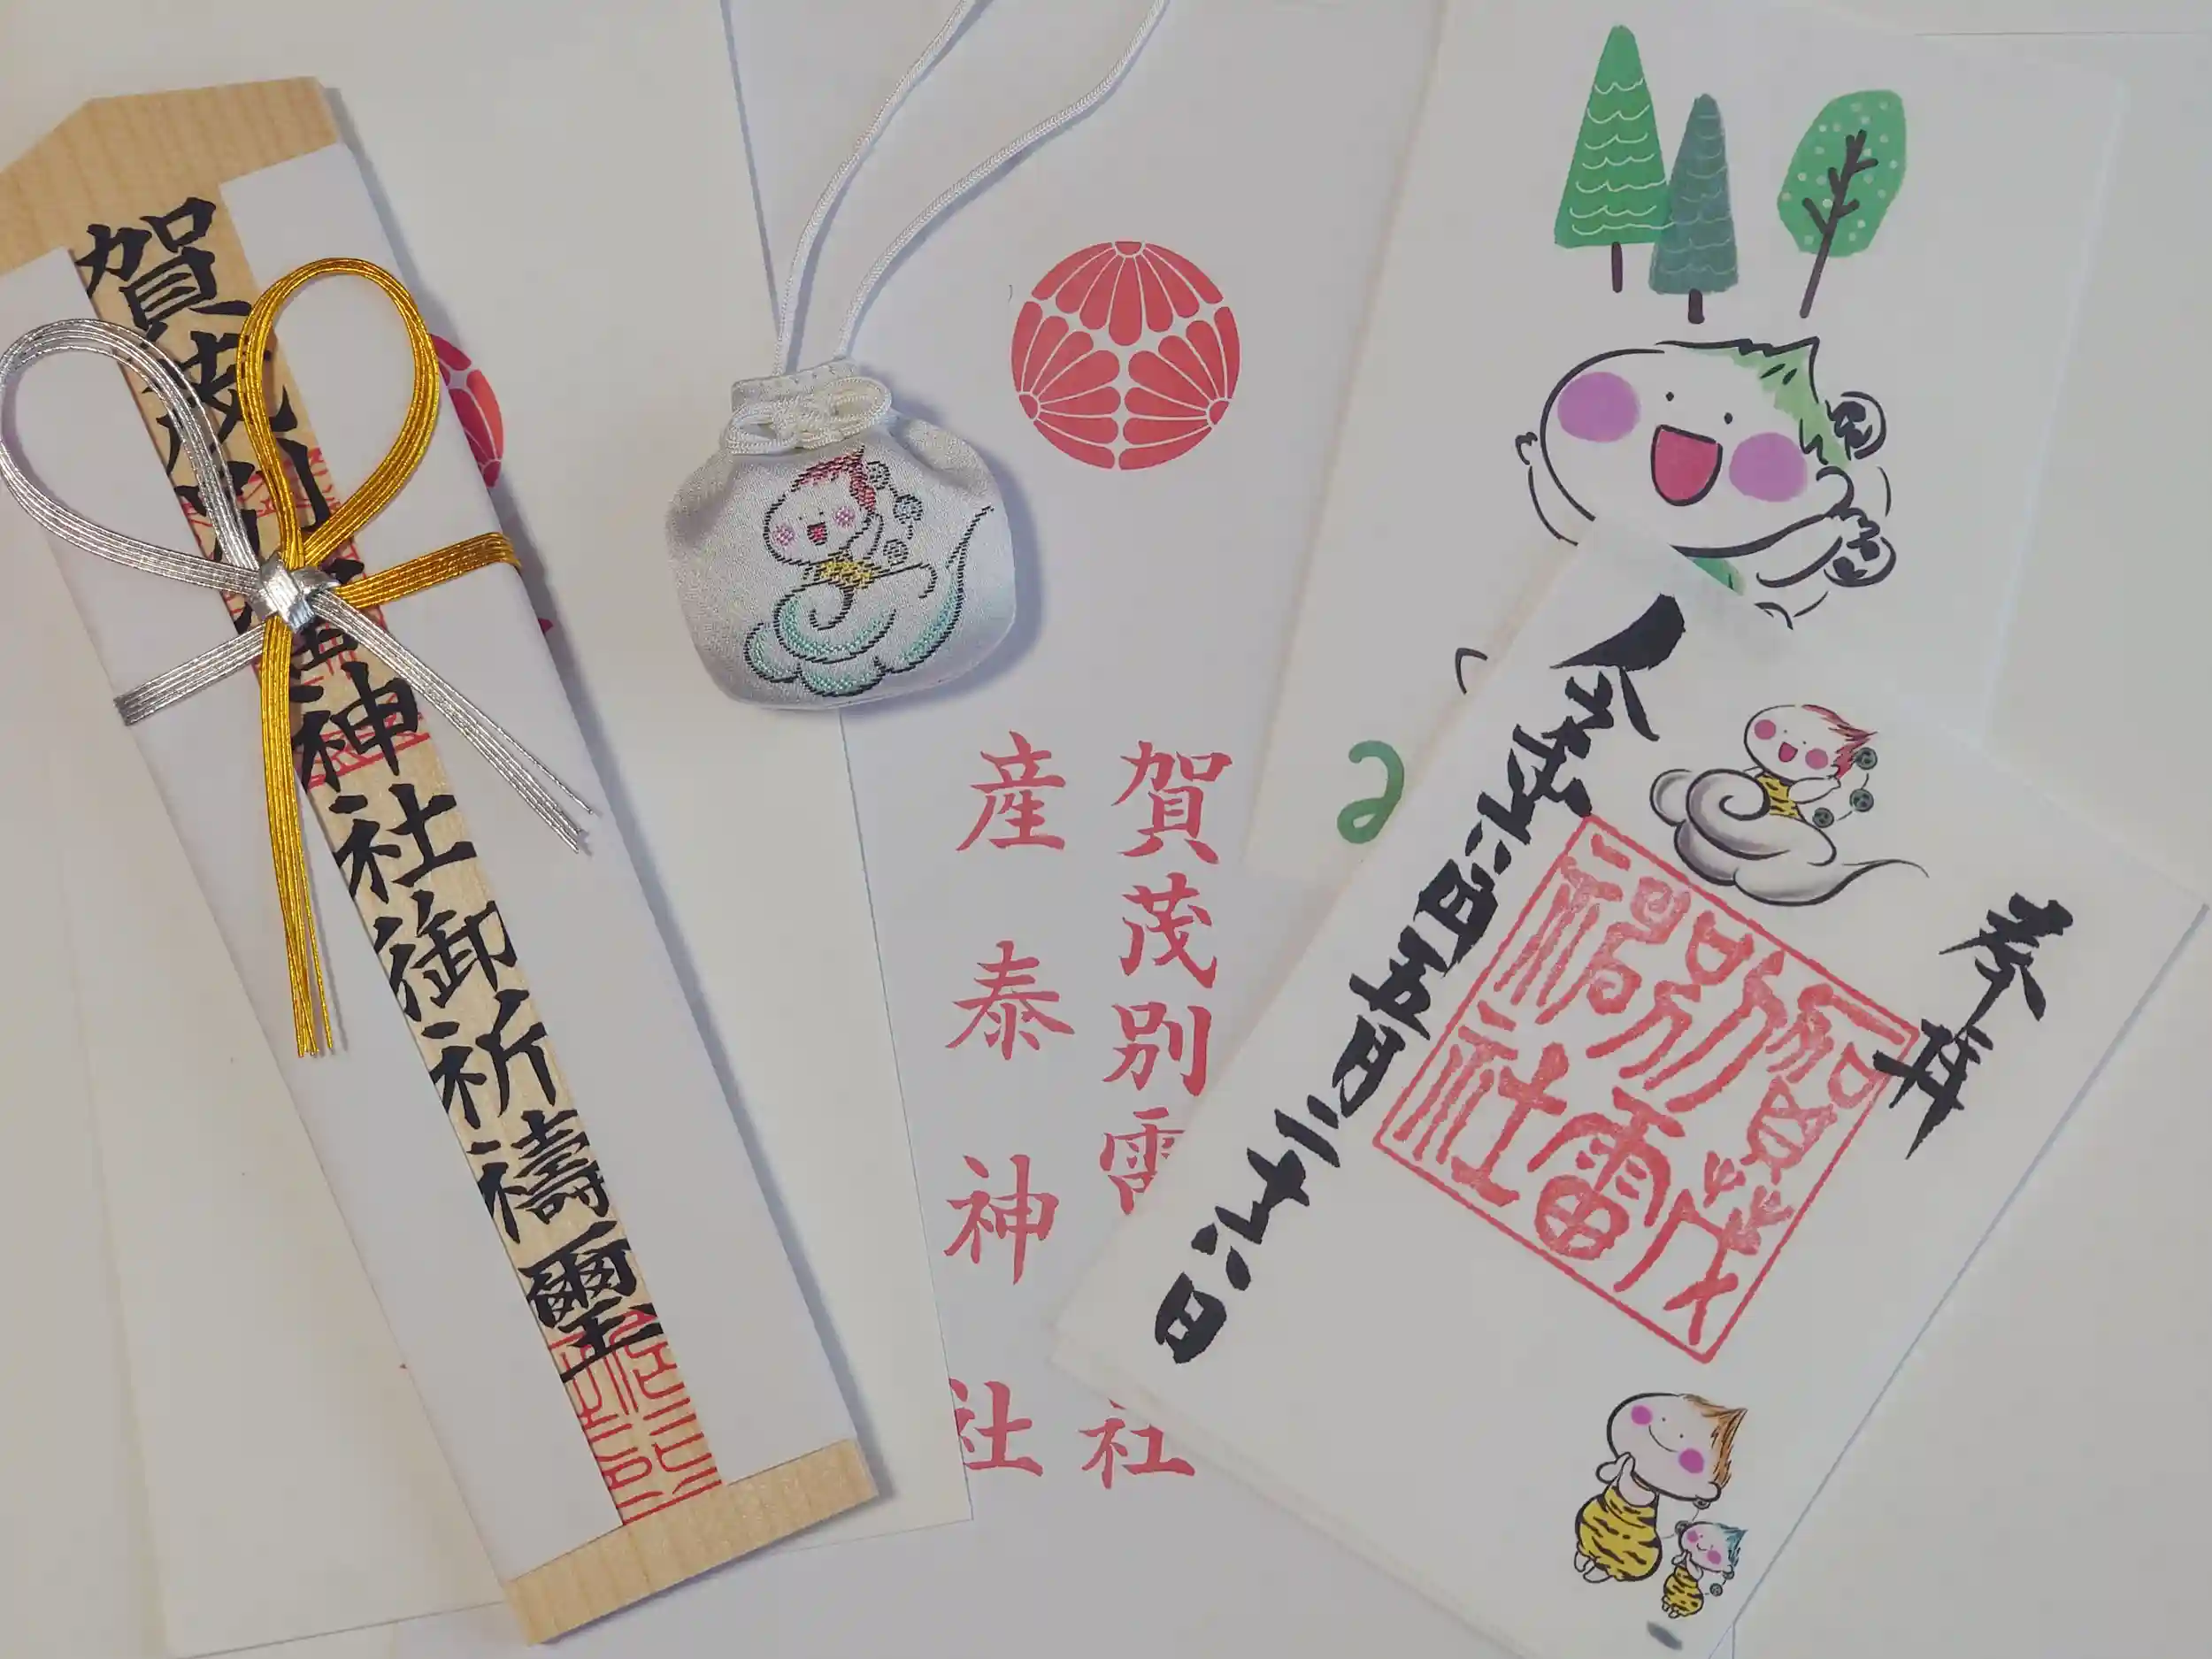 賀茂別雷神社御祈禱璽
賀茂別雷 社
産泰神社
奉拝
賀茂
別雷
神社
令和 月二十 日